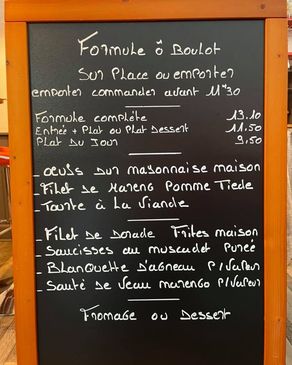 Formule ô Boulot
Sur Place ou emporter
emporter commander avant 11H30
Formule complète 13.10
Entrée + Plat ou Plat Dessert 11.50
Plat Du Jour 9,50
- oeufs dur mayonnaise maison
- Filet de Hareng Pomme Tiede
- Tourte à La Viande
- Filet de Dorade Frites maison
- Saucisses au muscadet Purée
- Blanquette D'agneau P/Vapeur
- Sauté de Veau marengo P/Vapeur
Fromage ou Dessert